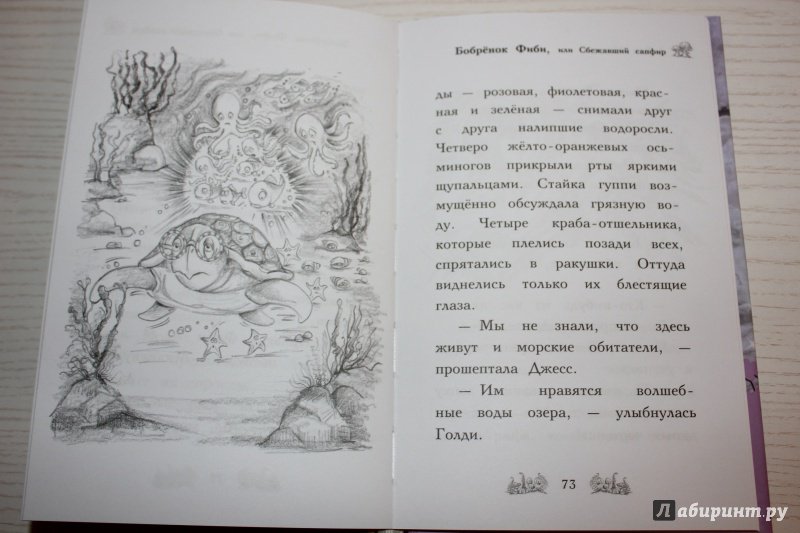 Бобрёнок Фиби, или Сбежавший сапфир
ды — розовая, фиолетовая, крас-
ная и зелёная — снимали друг
с друга налипшие водоросли.
Четверо жёлто-оранжевых ось-
миногов прикрыли рты яркими
щупальцами. Стайка гуппи воз-
мущённо обсуждала грязную во-
ду. Четыре краба-отшельника,
которые плелись позади всех,
спрятались в ракушки. Оттуда
виднелись только их блестящие
глаза.
— Мы не знали, что здесь
живут и морские обитатели, —
прошептала Джесс.
— Им нравятся волшеб-
ные воды озера, — улыбнулась
Голди.
73
Лабиринт.ру